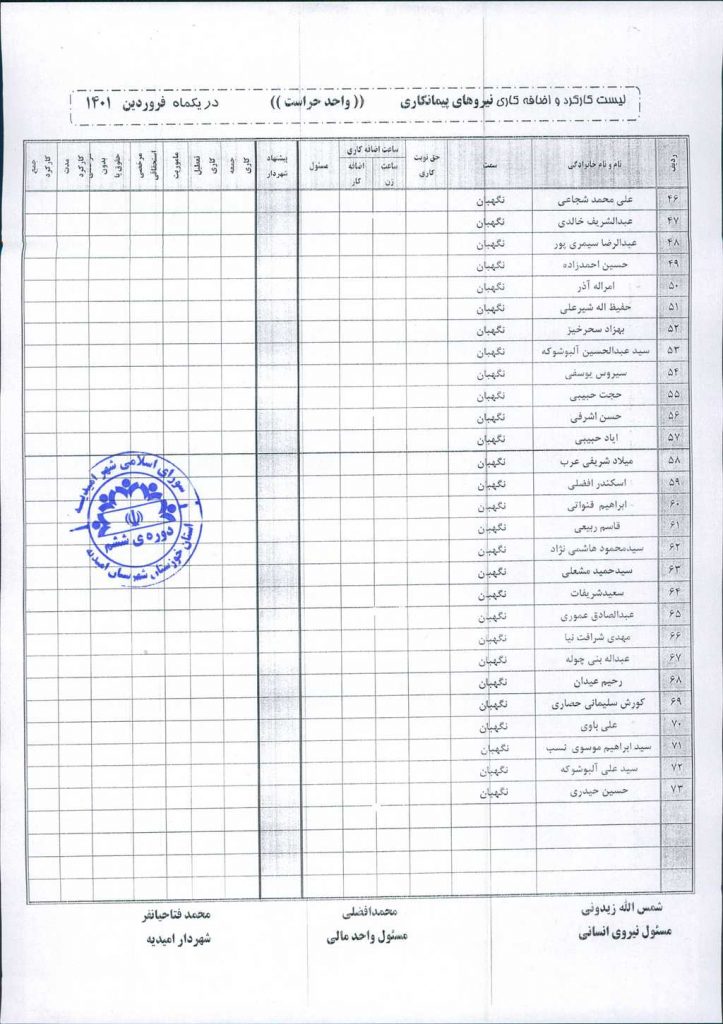 لیست کارکرد و اضافه کاری نیروهای پیمانکاری (( واحد حراست )) در یکماه فروردین ۱۴۰۱
ردیف نام و نام خانوادگی سمت حق نوبت کاری ساعت اضافه کاری ساعت زن اضافه کار مسئول پیشنهاد شهردار جمعه کاری تعطیل کاری ماموریت مرخصی استحقاقی بدون حقوق یا مدت کارکرد جمع کارکرد
۴۶ علی محمد شجاعی نگهبان
۴۷ عبدالشریف خالدی نگهبان
۴۸ عبدالرضا سیمری پور نگهبان
۴۹ حسین احمدزاده نگهبان
۵۰ امراله آذر نگهبان
۵۱ حفیظ اله شیرعلی نگهبان
۵۲ بهزاد سحرخیز نگهبان
۵۳ سید عبدالحسین آلبوشوکه نگهبان
۵۴ سیروس یوسفی نگهبان
۵۵ حجت حبیبی نگهبان
۵۶ حسن اشرفی نگهبان
۵۷ ایاد حبیبی نگهبان
۵۸ میلاد شریفی عرب نگهبان
۵۹ اسکندر افضلی نگهبان
۶۰ ابراهیم قنواتی نگهبان
۶۱ قاسم ربیعی نگهبان
۶۲ سیدمحمود هاشمی نژاد نگهبان
۶۳ سیدحمید مشعلی نگهبان
۶۴ سعیدشریفات نگهبان
۶۵ عبدالصادق عموری نگهبان
۶۶ مهدی شرافت نیا نگهبان
۶۷ عبداله بنی چوله نگهبان
۶۸ رحیم عیدان نگهبان
۶۹ کورش سلیمانی حصاری نگهبان
۷۰ علی باوی نگهبان
۷۱ سید ابراهیم موسوی نسب نگهبان
۷۲ سید علی آلبوشوکه نگهبان
۷۳ حسین حیدری نگهبان
شورای اسلامی شهر امیدیه
دوره ی ششم
استان خوزستان شهرستان امیدیه
شمس الله زیدونی محمدافضلی محمد فتاحیانفر
مسئول نیروی انسانی مسئول واحد مالی شهردار امیدیه